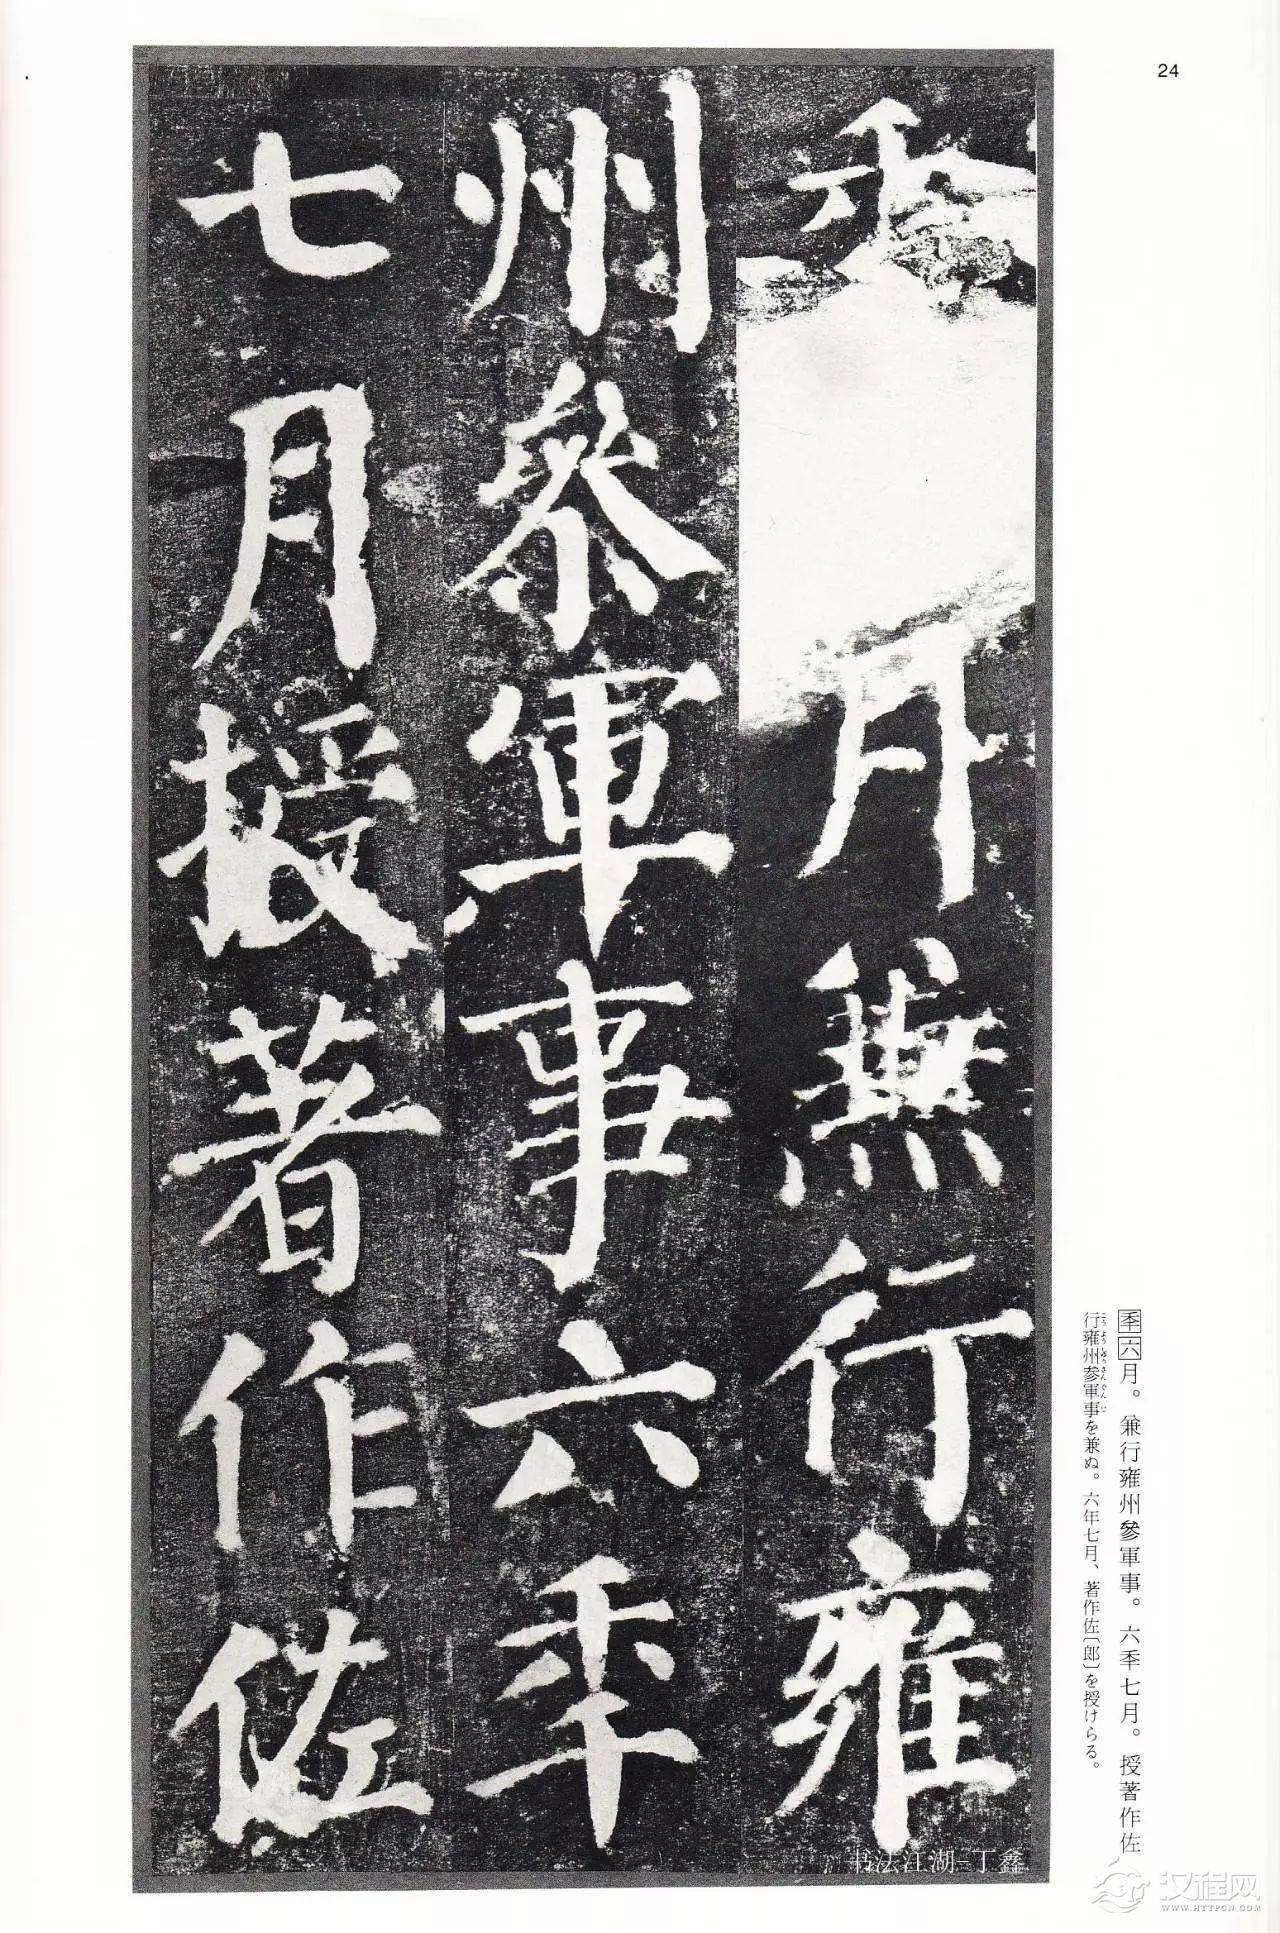 24
季
月兼行雍
州參軍事六季
七月授著作佐
季六月。兼行雍州參軍事。六季七月。授著作佐
行雍州参軍事を兼ぬ。六年七月、著作佐〔郎〕を授けらる。
书法江湖-丁鑫
汉程网
WWW.HTTPCN.COM